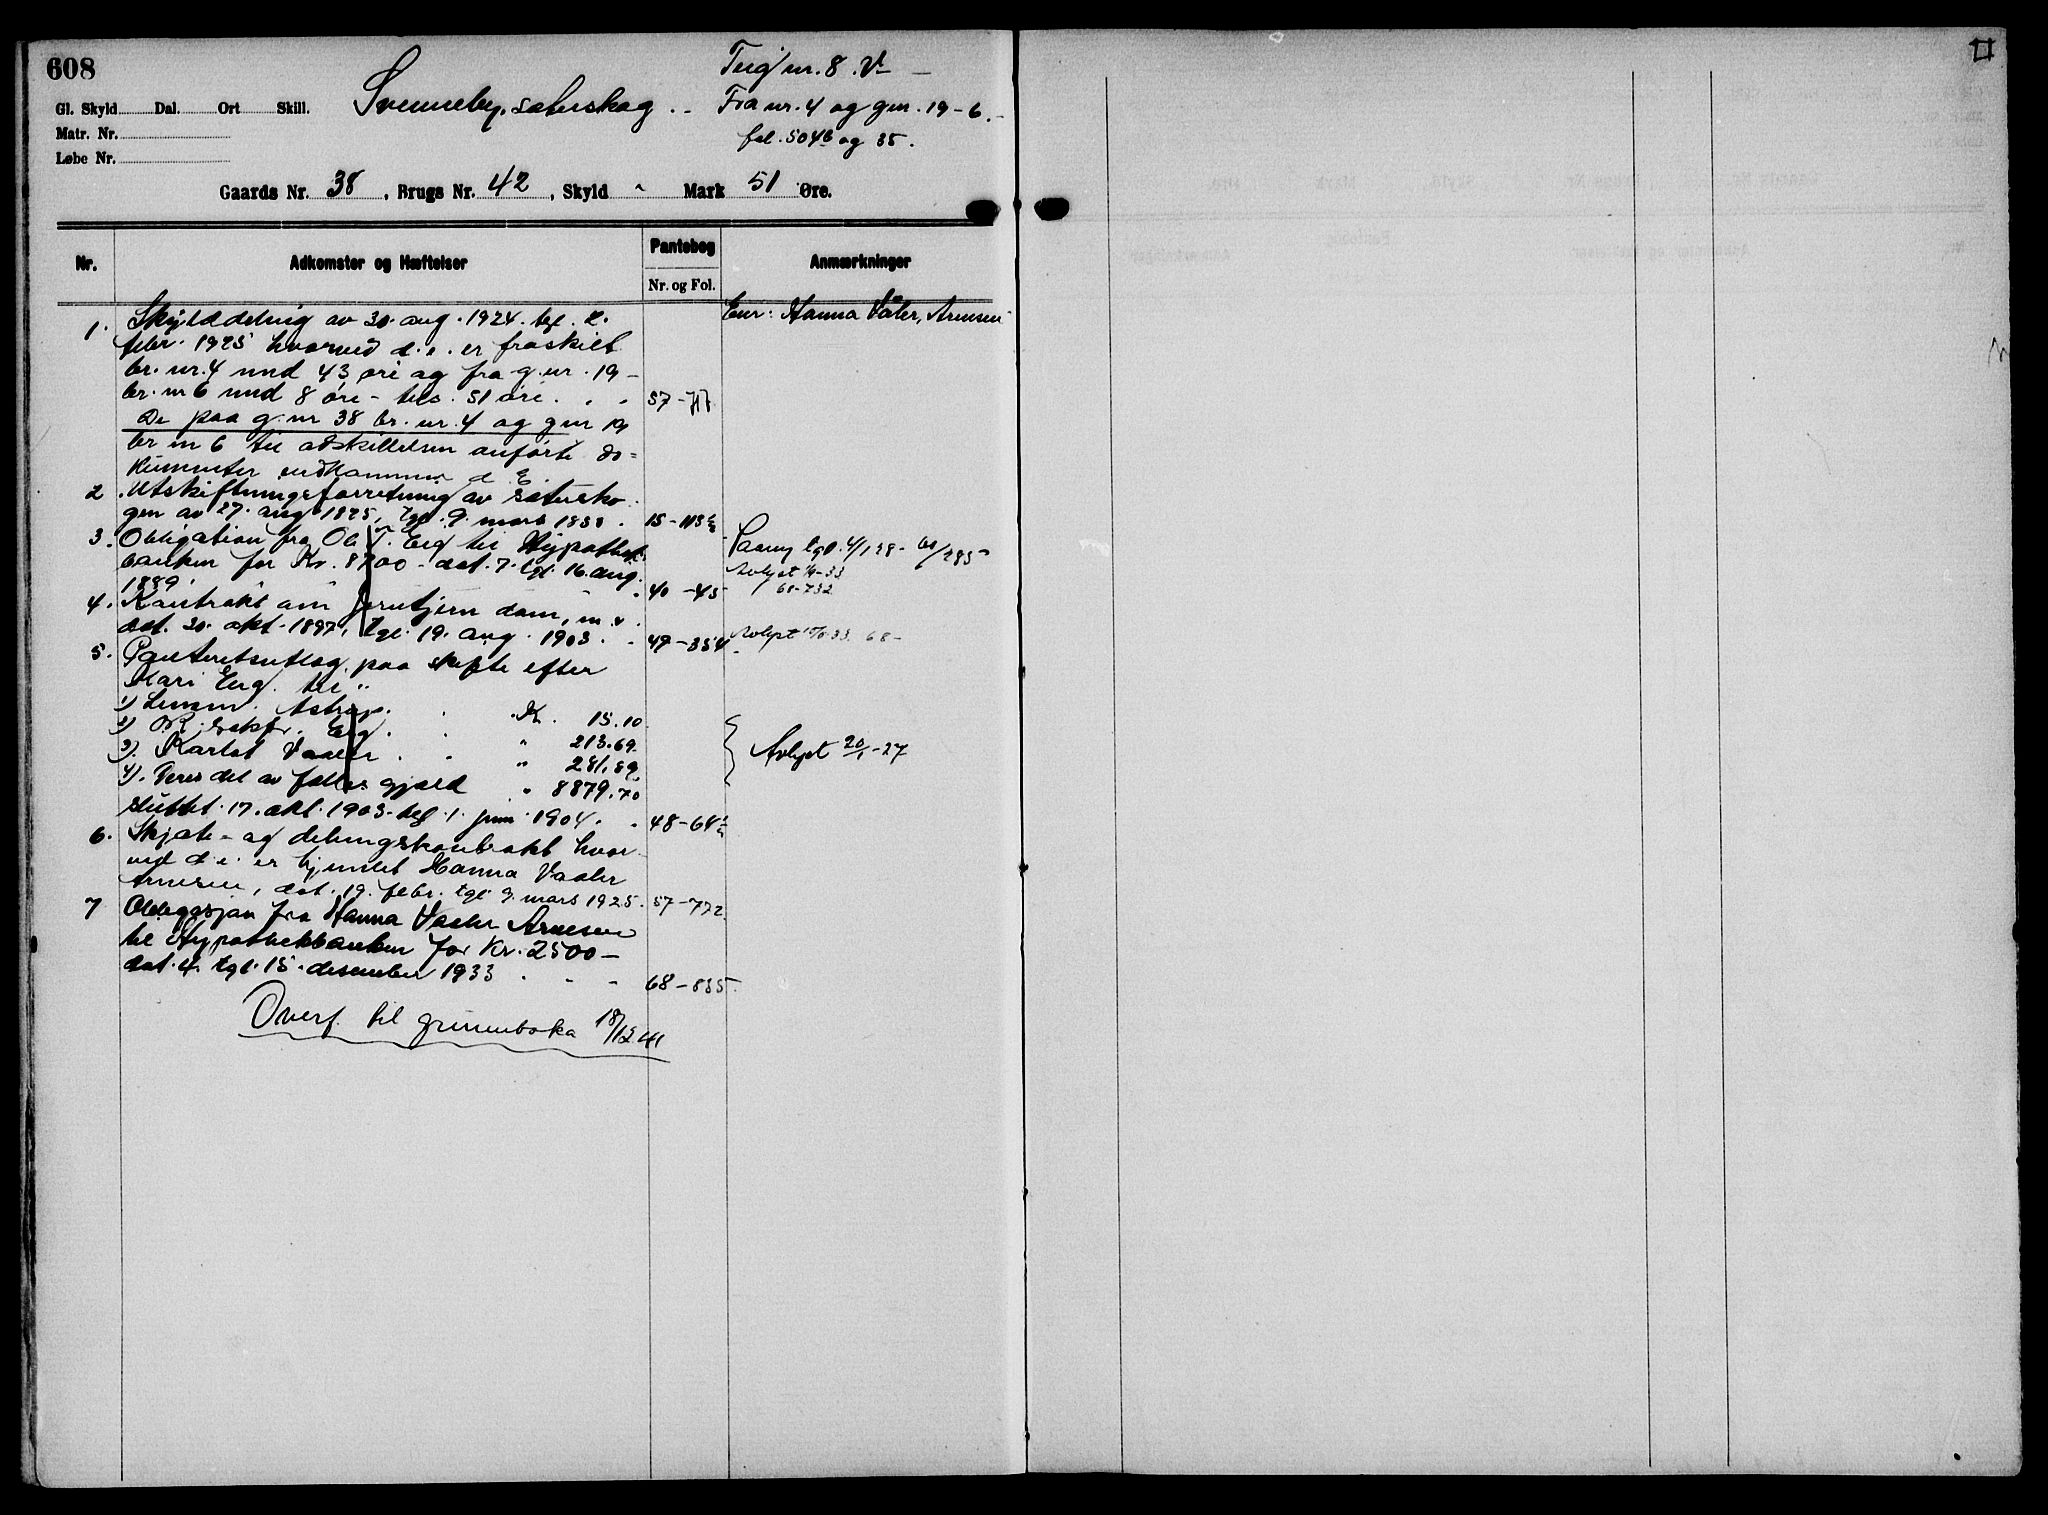 608
Teig nr. 8. V
Gl. Skyld Dal. Ort Skill.
Svenneby, sæterskog
Fra nr. 4 og gnr. 19-6.
Matr. Nr.
Løbe Nr.
fol. 504b og 35.
Gaards Nr. 38, Brugs Nr. 42, Skyld " Mark 51 Øre.
Nr. Adkomster og Hæftelser Pantebog Nr. og Fol. Anmærkninger
1. Skylddeling av 30. aug. 1924. tgl. 2.
Eier: Hanna Våler, Arnesen
febr. 1925 hvorved d. e. er fraskilt
br. nr. 4 med 43 øre og fra g. nr. 19-
br. nr 6 med 8 øre - tils. 51 øre. 57-717
De paa g. nr 38 br. nr. 4 og gnr 19
br nr 6 til adskillelsen anførte do=
kumenter vedkommer d. E.
2. Utskiftningsforretning av sætersko
gen av 27. aug 1875, tgl. 9. mars 1833. 15-113
3. Obligation fra Ole T. Eng til Hypothek
banken for Kr. 8700 - dat. 7. tgl. 16. aug.
1889 40-45
tgl. 4/1 28- 60/285
Avlyst 33
68-732
4. Kontrakt om dam, m.v.
dat. 30. okt. 1897, tgl. 19. aug. 1903. 47-354
Avlyst 33. 68-
5. Panteretsutlæg paa skifte efter
Mari Eng. til
1) Lensm. Astrup. Kr. 15.10
2) Eng. " 213.69
3) Vaaler " 281.89
4). Deres del av fælles gjæld " 8879.70
Avlyst 20/1-27
sluttet 17. okt. 1903. tgl. 1. juni 1904. 48-64
6. Skjøte- og delingskontrakt hvor
ved d. e. er hjemlet Hanna Vaaler
Arnesen, dat. 19. febr. tgl. 9. mars 1925. 57-772
7 Obligasjon fra Hanna Vaaler Arnesen
til Hypothekbanken for Kr. 2500 -
dat. 4. tgl. 15. desember 1933 68-835
Overf. til grunnboka 18/12 41